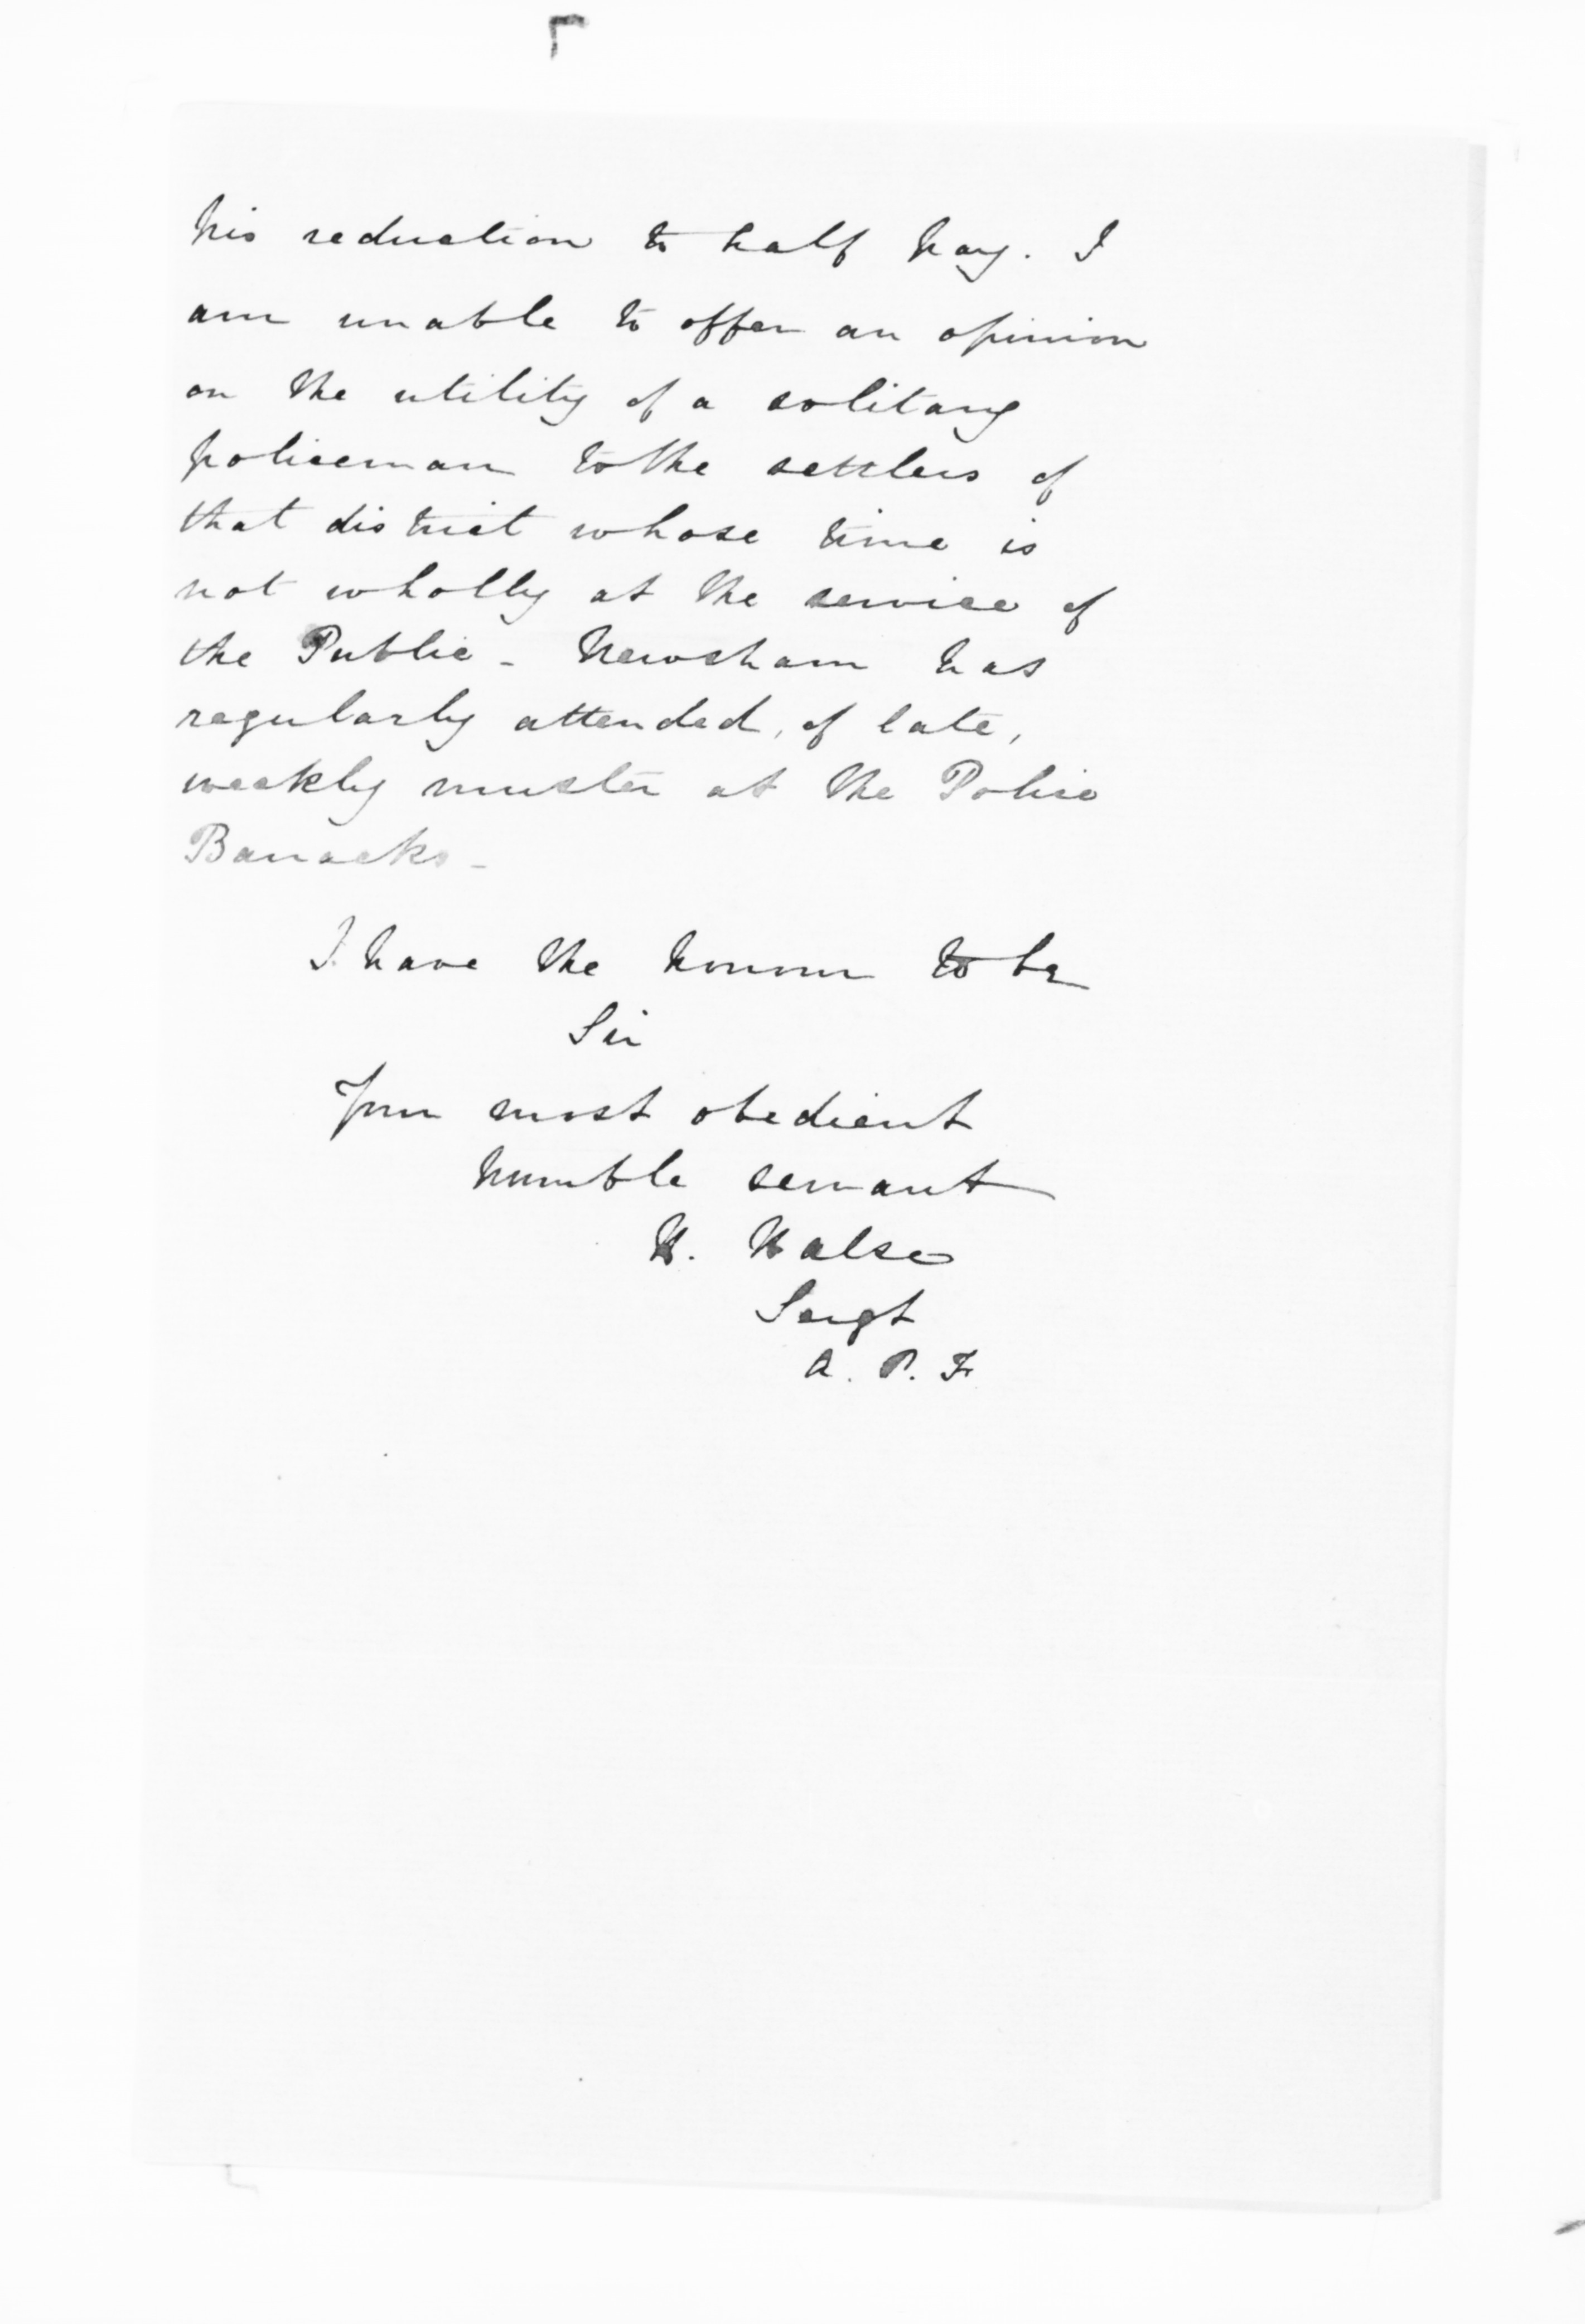 his reduction to half pay. I
am unable to offer an opinion
on the utility of a solitary
policeman to the settlers of
that district whose time is
not wholly at the service of
the Public - Newsham has
regularly attended, of late,
weekly muster at the Police
Barracks -
I have the honour to be
Sir
Your most obedient
humble servant
W. Halse
Sergt
A. P. F